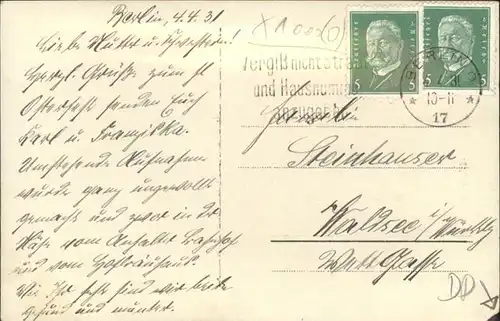 Berlin, 4.4.31
Liebe Mutter u. Schwestern!
Herzl. Grüße zum
Osterfest senden Euch
Karl u. Franziska.
Umstehende Aufnahme
wurde ganz ungewollt
gemacht und zwar in der
Nähe vom Anhalter Bahnhof
und vom Hofbräuhaus.
Wie Ihr seht sind wir beide
gesund und munter.
Vergiß nicht Straße
und Hausnummer
anzugeben
Deutsches Reich
5
Deutsches Reich
5
BERLIN
10-11
* 17 *
Familie
Steinhauser
Waldsee i/Württbg